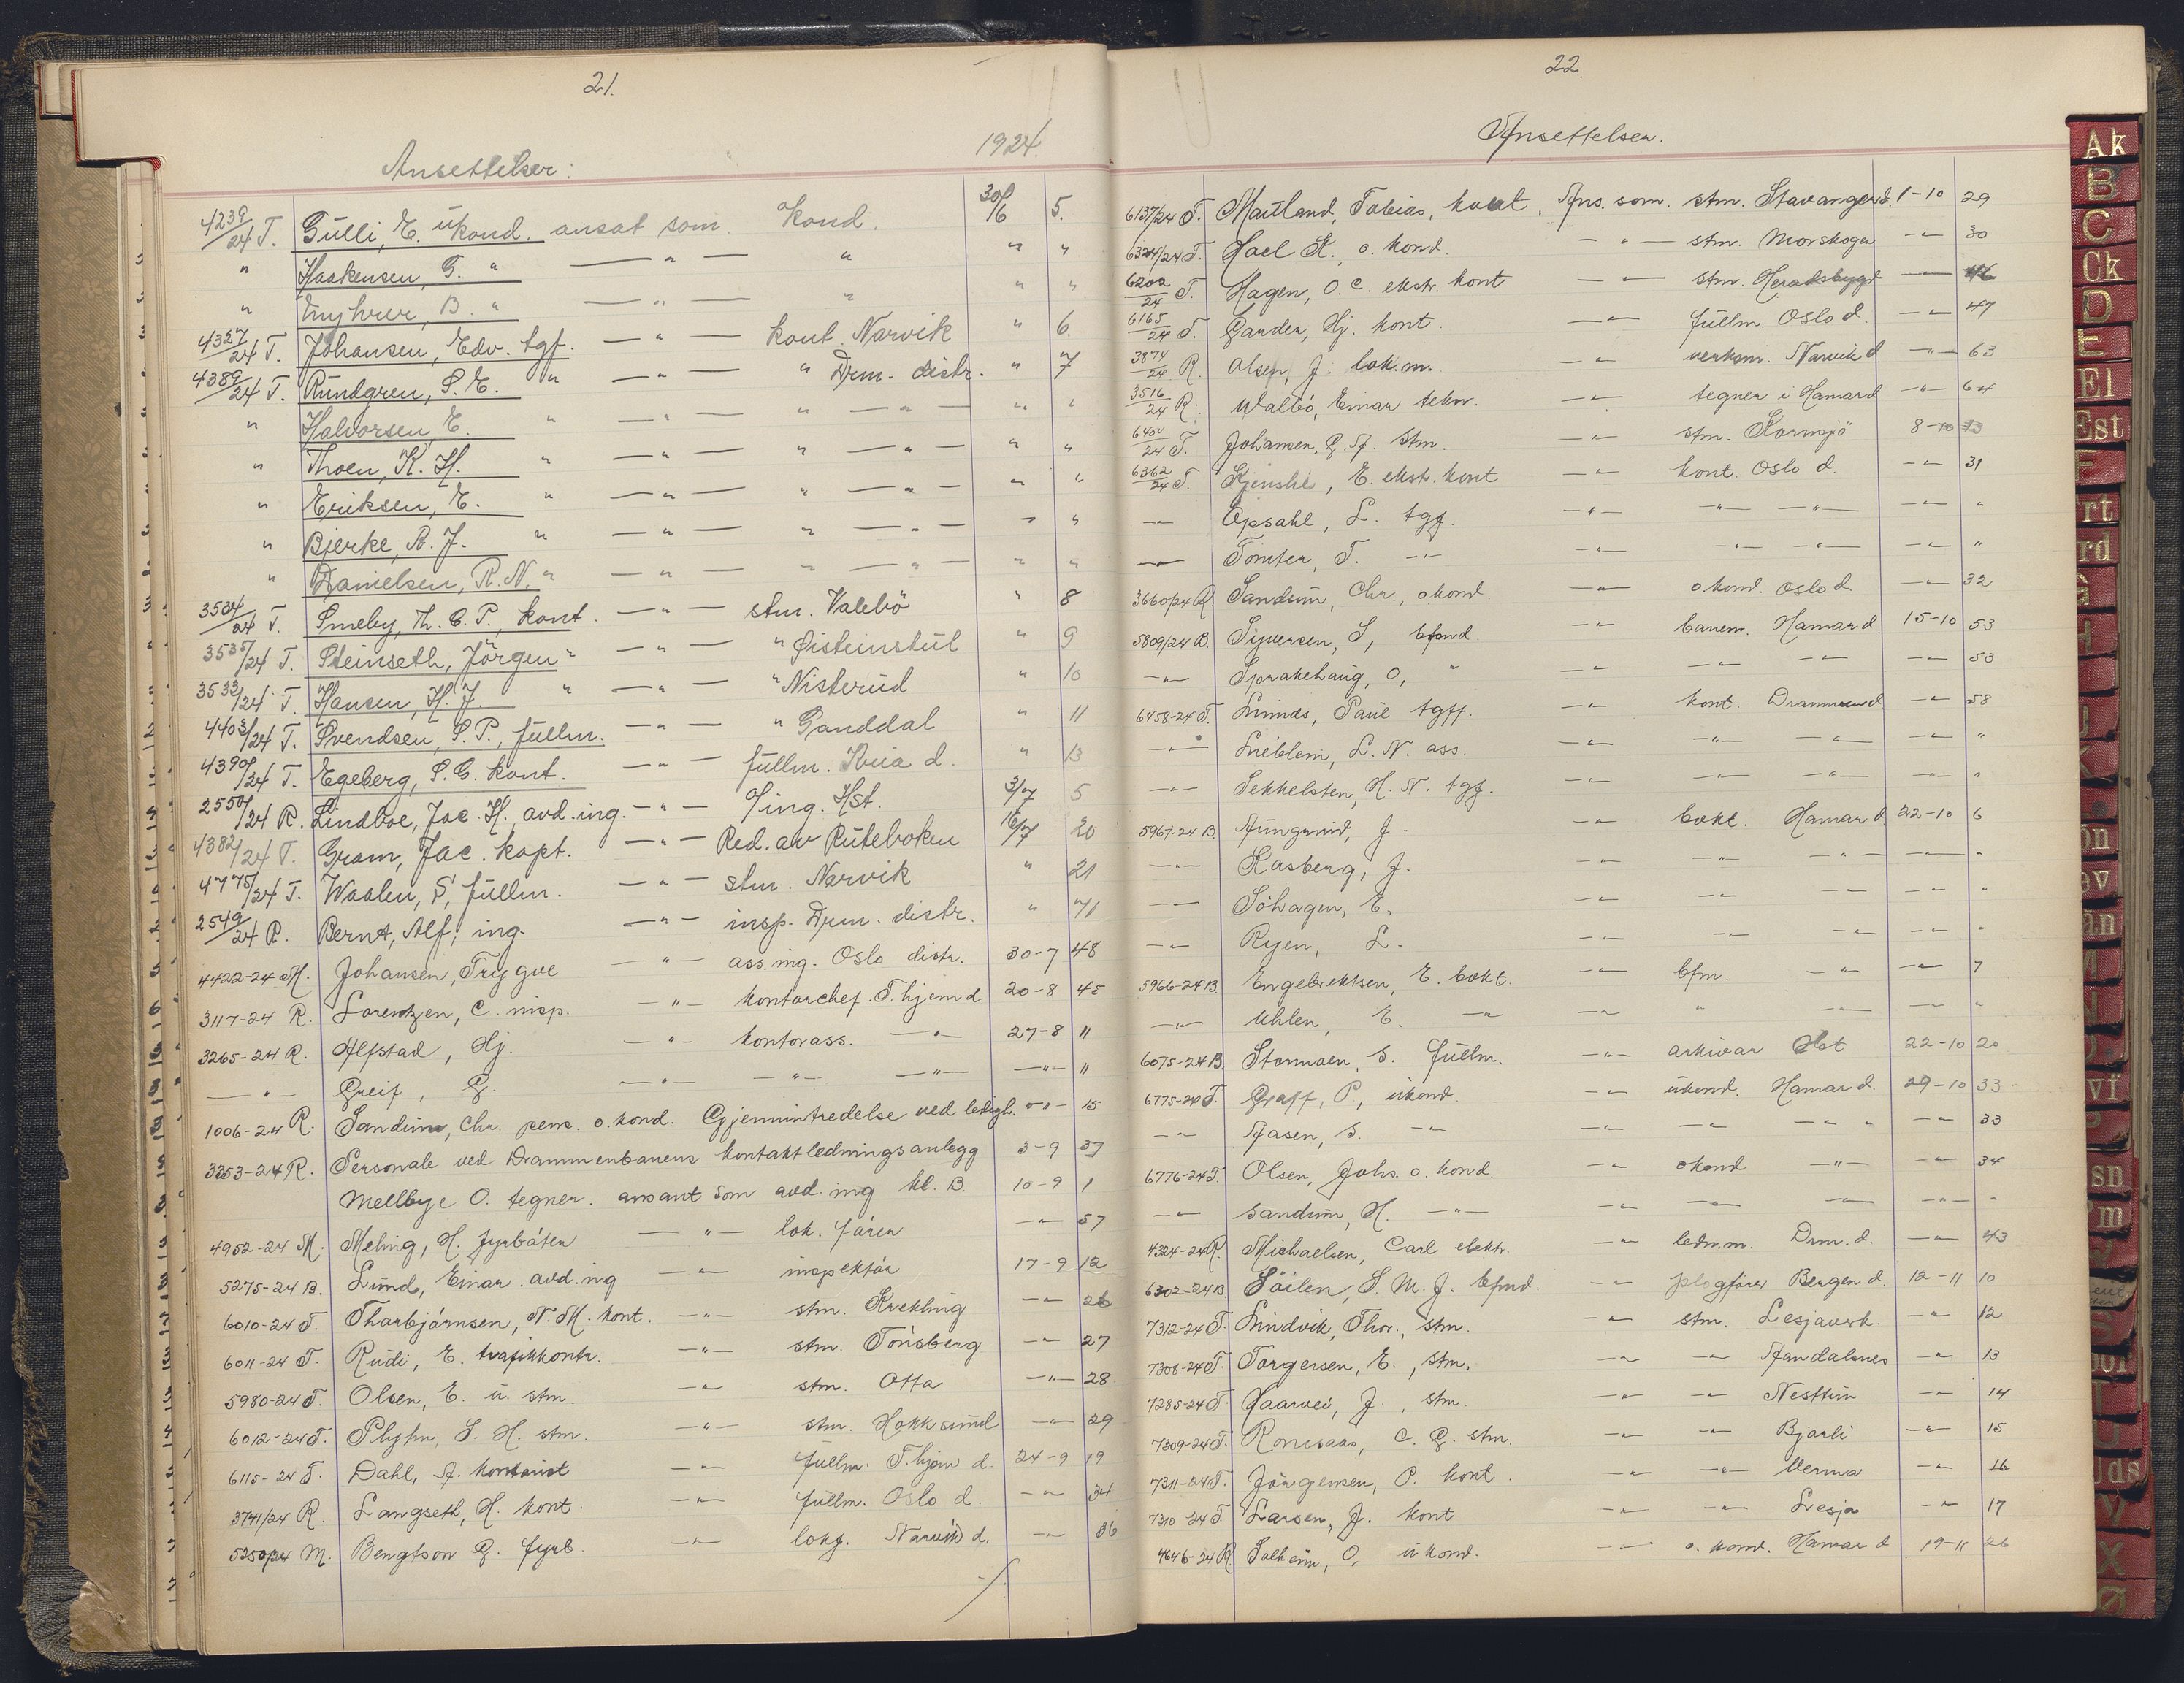 21.
Ansettelser: 1924.
4239/24 T. Gulli, E. ukond. ansat som Kond. 30/6 5.
" Haakensen, G. " — " — " " "
" Myhrer, B. " — " — " " "
4327/24 T. Johansen, Edv. tgf. — " — kont. Narvik " 6.
4389/24 T. Rundgren, S. E. " — " — " Drm. distr. " 7
" Halvorsen E. " — " — " — " — " "
" Thoen, K. H. " — " — " — " — " "
" Eriksen, E. " — " — " — " — " "
" Bjerke, A. J. " — " — " — " — " "
" Danielsen, R. N. " — " — " — " — " "
3534/24 T. Smeby, Th. O. P., kont. — " — stm. Valebö " 8
3535/24 T. Steinseth, Jörgen " — " — " Øisteinstul " 9
3533/24 T. Hansen, H. J. " — " — " Nisterud " 10
4403/24 T. Svendsen, S. P., fullm. — " — " Ganddal " 11
4390/24 T. Egeberg, S. G. kont. — " — fullm. Kria d. " 13
2550/24 R. Lindboe, Jac. H. avd.ing. — " — o/ing. Hst. 3/7 5
4382/24 T. Gram, Jac. kapt. — " — Red. av Ruteboken 16/7 20
4775/24 T. Waalen, S, fullm. — " — stm. Narvik " 21
2549/24 R. Bernt, Alf, ing. — " — insp. Drm. distr. " 71
4422-24 M. Johansen, Trygve — " — ass.ing. Oslo distr. 30-7 48
3117-24 R. Lorentzen, C. insp. — " — kontorchef. T.hjem d 20-8 45
3265-24 R. Alfstad, Hj. — " — kontorass. — " — 27-8 11
— " — Greif, G. — " — — " — — " — — " — 11
1006-24 R. Sandum, Chr. pens. o.kond. Gjeninntredelse ved ledigh. — " — 15
3353-24 R. Personale ved Drammenbanens kontaktledningsanlegg 3-9 37
Mellbye O. tegner. ansatt som avd. ing kl. B. 10-9 1
4952-24 M. Meling, H. fyrböter — " — lok. förer — " — 57
5275-24 B. Lund, Einar. avd.ing — " — inspektör 17-9 12
6010-24 T. Thorbjörnsen, N. M. kont. — " — stm. Krekling — " — 26
6011-24 T. Rudi, E. trafikkontr. — " — stm. Tönsberg — " — 27
5980-24 T. Olsen, E. u. stm. — " — stm. Otta — " — 28
6012-24 T. Plyhn, S. H. stm. — " — stm. Hokksund — " — 29
6115-24 T. Dahl, A. kontorist — " — fullm. T.hjem d. 24-9 19
3741/24 R. Langseth, H. kont. — " — fullm. Oslo d. — " — 34
5250/24 M. Bengtson G. fyrb. — " — lokf. Narvik d. — " — 86
22.
Ansettelser.
6137/24 T. Mauland, Tobias, kont, Ans. som. stm. Stavanger d. 1-10 29
6324/24 T. Hoel K., o. kond. — " — stm. Morskogen — " — 30
6202/24 T. Hagen, O. C. ekstr. kont — " — stm. Heradsbygd — " — 46
6165/24 T. Garder, Hj. kont. — " — fullm. Oslo d. — " — 47
3874/24 R. Olsen, J. lok.m. — " — verksm. Narvik d — " — 63
3516/24 R. Walbö, Einar tekn. — " — tegner i Hamar d — " — 64
6400/24 T. Johansen, G. A. stm. — " — stm. Kornsjö 8-10 13
6362/24 T. Gjenshé, E. ekstr. kont — " — kont. Oslo d. — " — 31
— " — Opsahl, L. tgf. — " — — " — — " — — " — "
— " — Tomter, T. — " — — " — — " — — " — — " — "
3660/24 R Sandum, Chr., okond. — " — okond. Oslo d. — " — 32
5809/24 B. Siversen, S, bfmd. — " — banem. Hamar d. 15-10 53
— " — Sprakehaug, O, " — " — — " — — " — — " — 53
6458-24 T. Lunnds, Paul tgff. — " — kont. Drammen d — " — 58
— " — Lieblein, L. N. ass. — " — — " — — " — — " — "
— " — Sekkelsten, H. N. tgf. — " — — " — — " — — " — "
5967-24 B. Aungrud, J. — " — bvkt. Hamar d 22-10 6
— " — Kasberg, J. — " — — " — — " — — " — "
— " — Söhagen, E. — " — — " — — " — "
— " — Ryen, L. — " — — " — — " — — " — "
5966-24 B. Engebrektsen, E. bvkt. — " — bfm. — " — — " — 7
— " — Uhlen, E. — " — — " — " — " — — " — "
6075-24 B. Stormoen, S. fullm. — " — arkivar Hst 22-10 20
6775-24 T. Graff, P, ukond. — " — ukond. Hamar d. 29-10 33
— " — Aasen, S. — " — — " — — " — — " — " — " — 33
6776-24 T. Olsen, Johs. o. kond. — " — okond — " — — " — 34
— " — Sandum, H. — " — — " — — " — — " — — " — "
4324-24 R. Michaelsen, Carl elektr. — " — ledn.m. Drm. d. — " — 43
6302-24 B. Söilen, S. M. J. bfmd. — " — plogförer Bergen d. 12-11 10
7312-24 T. Lindvik, Thor., stm. — " — stm. Lesjaverk. — " — 12
7308-24 T. Torgersen, E., stm. — " — — " — Aandalsnes — " — 13
7285-24 T. Haarvei, J., stm. — " — — " — Nesttun — " — 14
7309-24 T. Romsaas, C. G. stm. — " — — " — Bjorli — " — 15
7311-24 T. Jörgensen, O. kont. — " — — " — Verma — " — 16
7310-24 T Larsen, J. kont — " — — " — Lesja — " — 17
4646-24 R Solheim, O, ukond. — " — o. kond. Hamar d 19-11 26
Ak
B
C
Ck
D
E
El
Est
F
rt
rd
G
H
I
J
K
øn
ev
än
M
N
O.
vi
P
sn
m
S
T
U
Uds
V
X
Ø